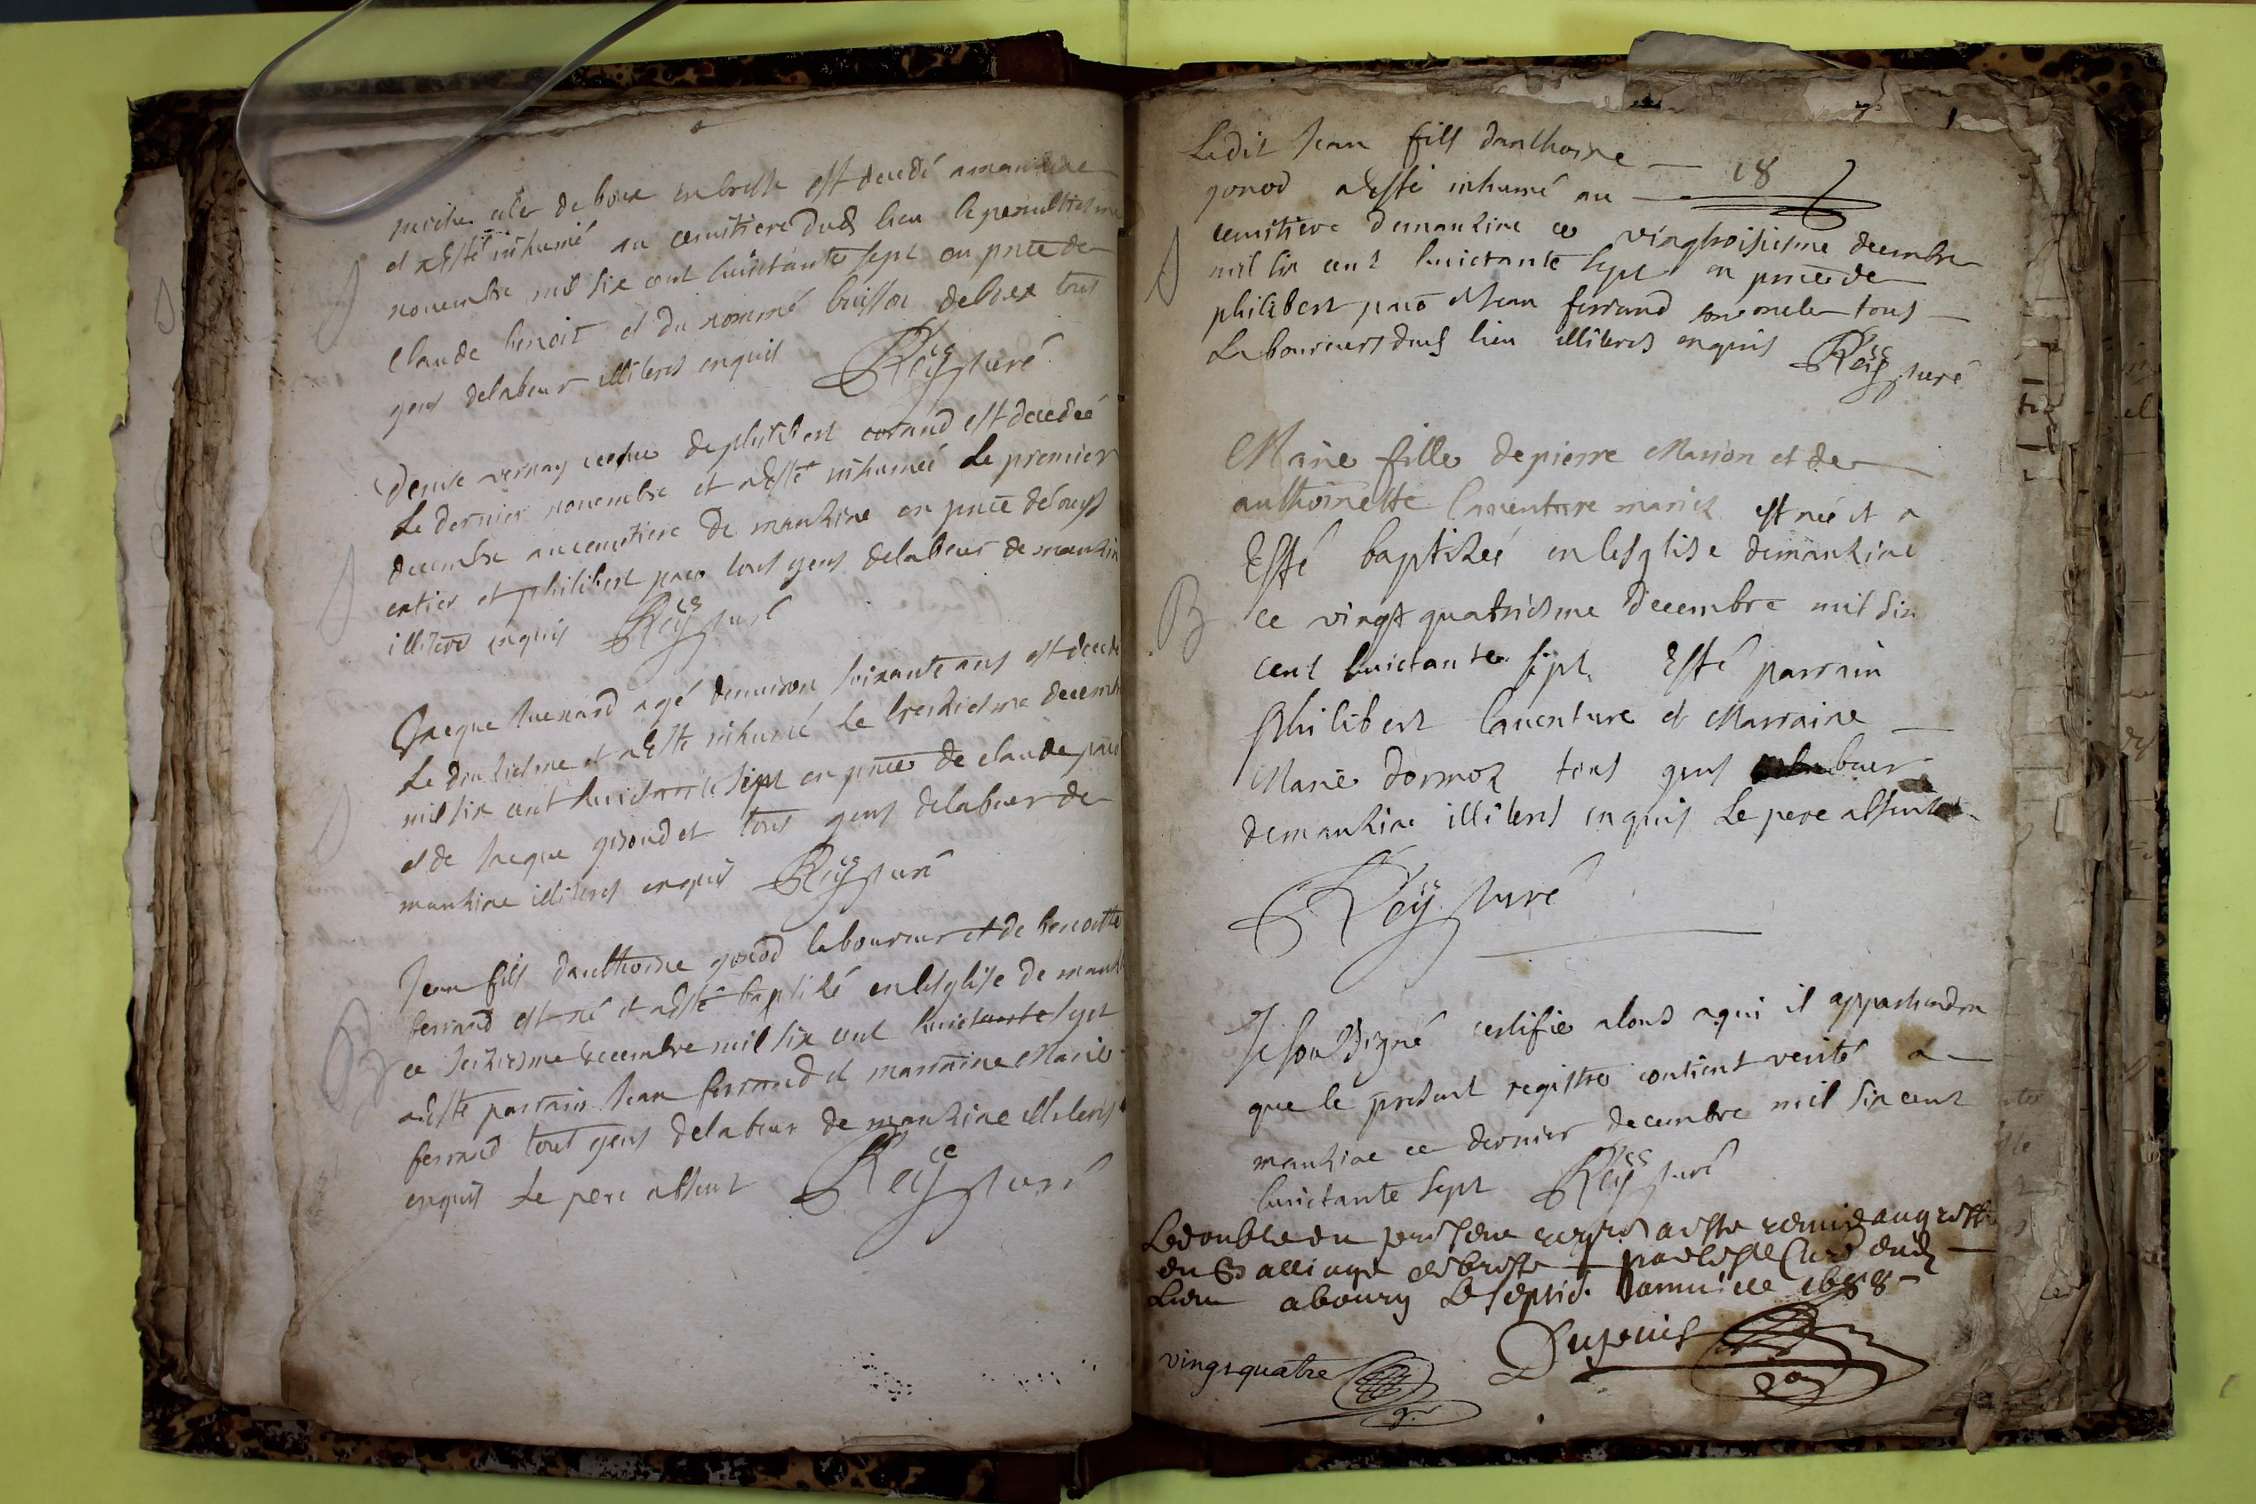 et a Esté inhumé au cemitiere dud lieu le penultiesme
novembre mil six cent huictante sept en pnce de
Claude benoit et du nommé buisson de boex tous
gens delabeur illiteres enquis Reÿ curé
denise vernay vesve de philibert corand est decedeé
Le dernier novembre et a Esté inhumeé Le premier
decembre au cemetiere de manziae en pnce de
entier et philibert tous gens delabeur de manzia
illiteres enquis Reÿ curé
Jacque agé denviron soixante ans est decede
Le douziesme et a Esté inhumé Le treiziesme decemb
mil six cent huictante sept en pnce de claude
et de Jacque girondet tous gens delabeur de
manziae illiteres enquis Reÿ curé
Jean fils danthoine gonod laboureur et de benoitte
ferrand est né et a Esté baptizé en lesglise de manz
ce seiziesme decembre mil six cent huictante sept
a Esté parrain Jean ferrand et marraine Marie
ferrand tous gens delabeur de manziae illiteres
enquis Le pere absent Reÿ curé
Ledit Jean fils danthoine
18
gonod a Esté inhumé au
cemitiere demanziae ce vingtroisiesme decembre
mil six cent huictante sept en pnce de
philibert et Jean ferrand son oncle tous
Laboureurs dud lieu illiteres enquis Reÿ curé
Marie fille de pierre Marion et de
anthoinette Laventure mariez est neé et a
Esté baptizeé en lesglise demanziae
ce vingt quatriesme decembre mil six
cent huictante sept Esté parrain
Philibert Laventure et Marraine
Marie dormoz tous gens delabeur
demanziae illiteres enquis Le pere absent
Reÿ curé
Je soubsigné certifie a tous a qui il appartiendra
que le present registre contient verité a
manziae ce dernier decembre mil six cent
huictante sept Reÿ curé
Ledouble du present a esté remis au greffe
du Balliage de bresse par le Sr Curé dud
Lieu a bourg Le Janvier 1688
Dupuis
vingt quatre